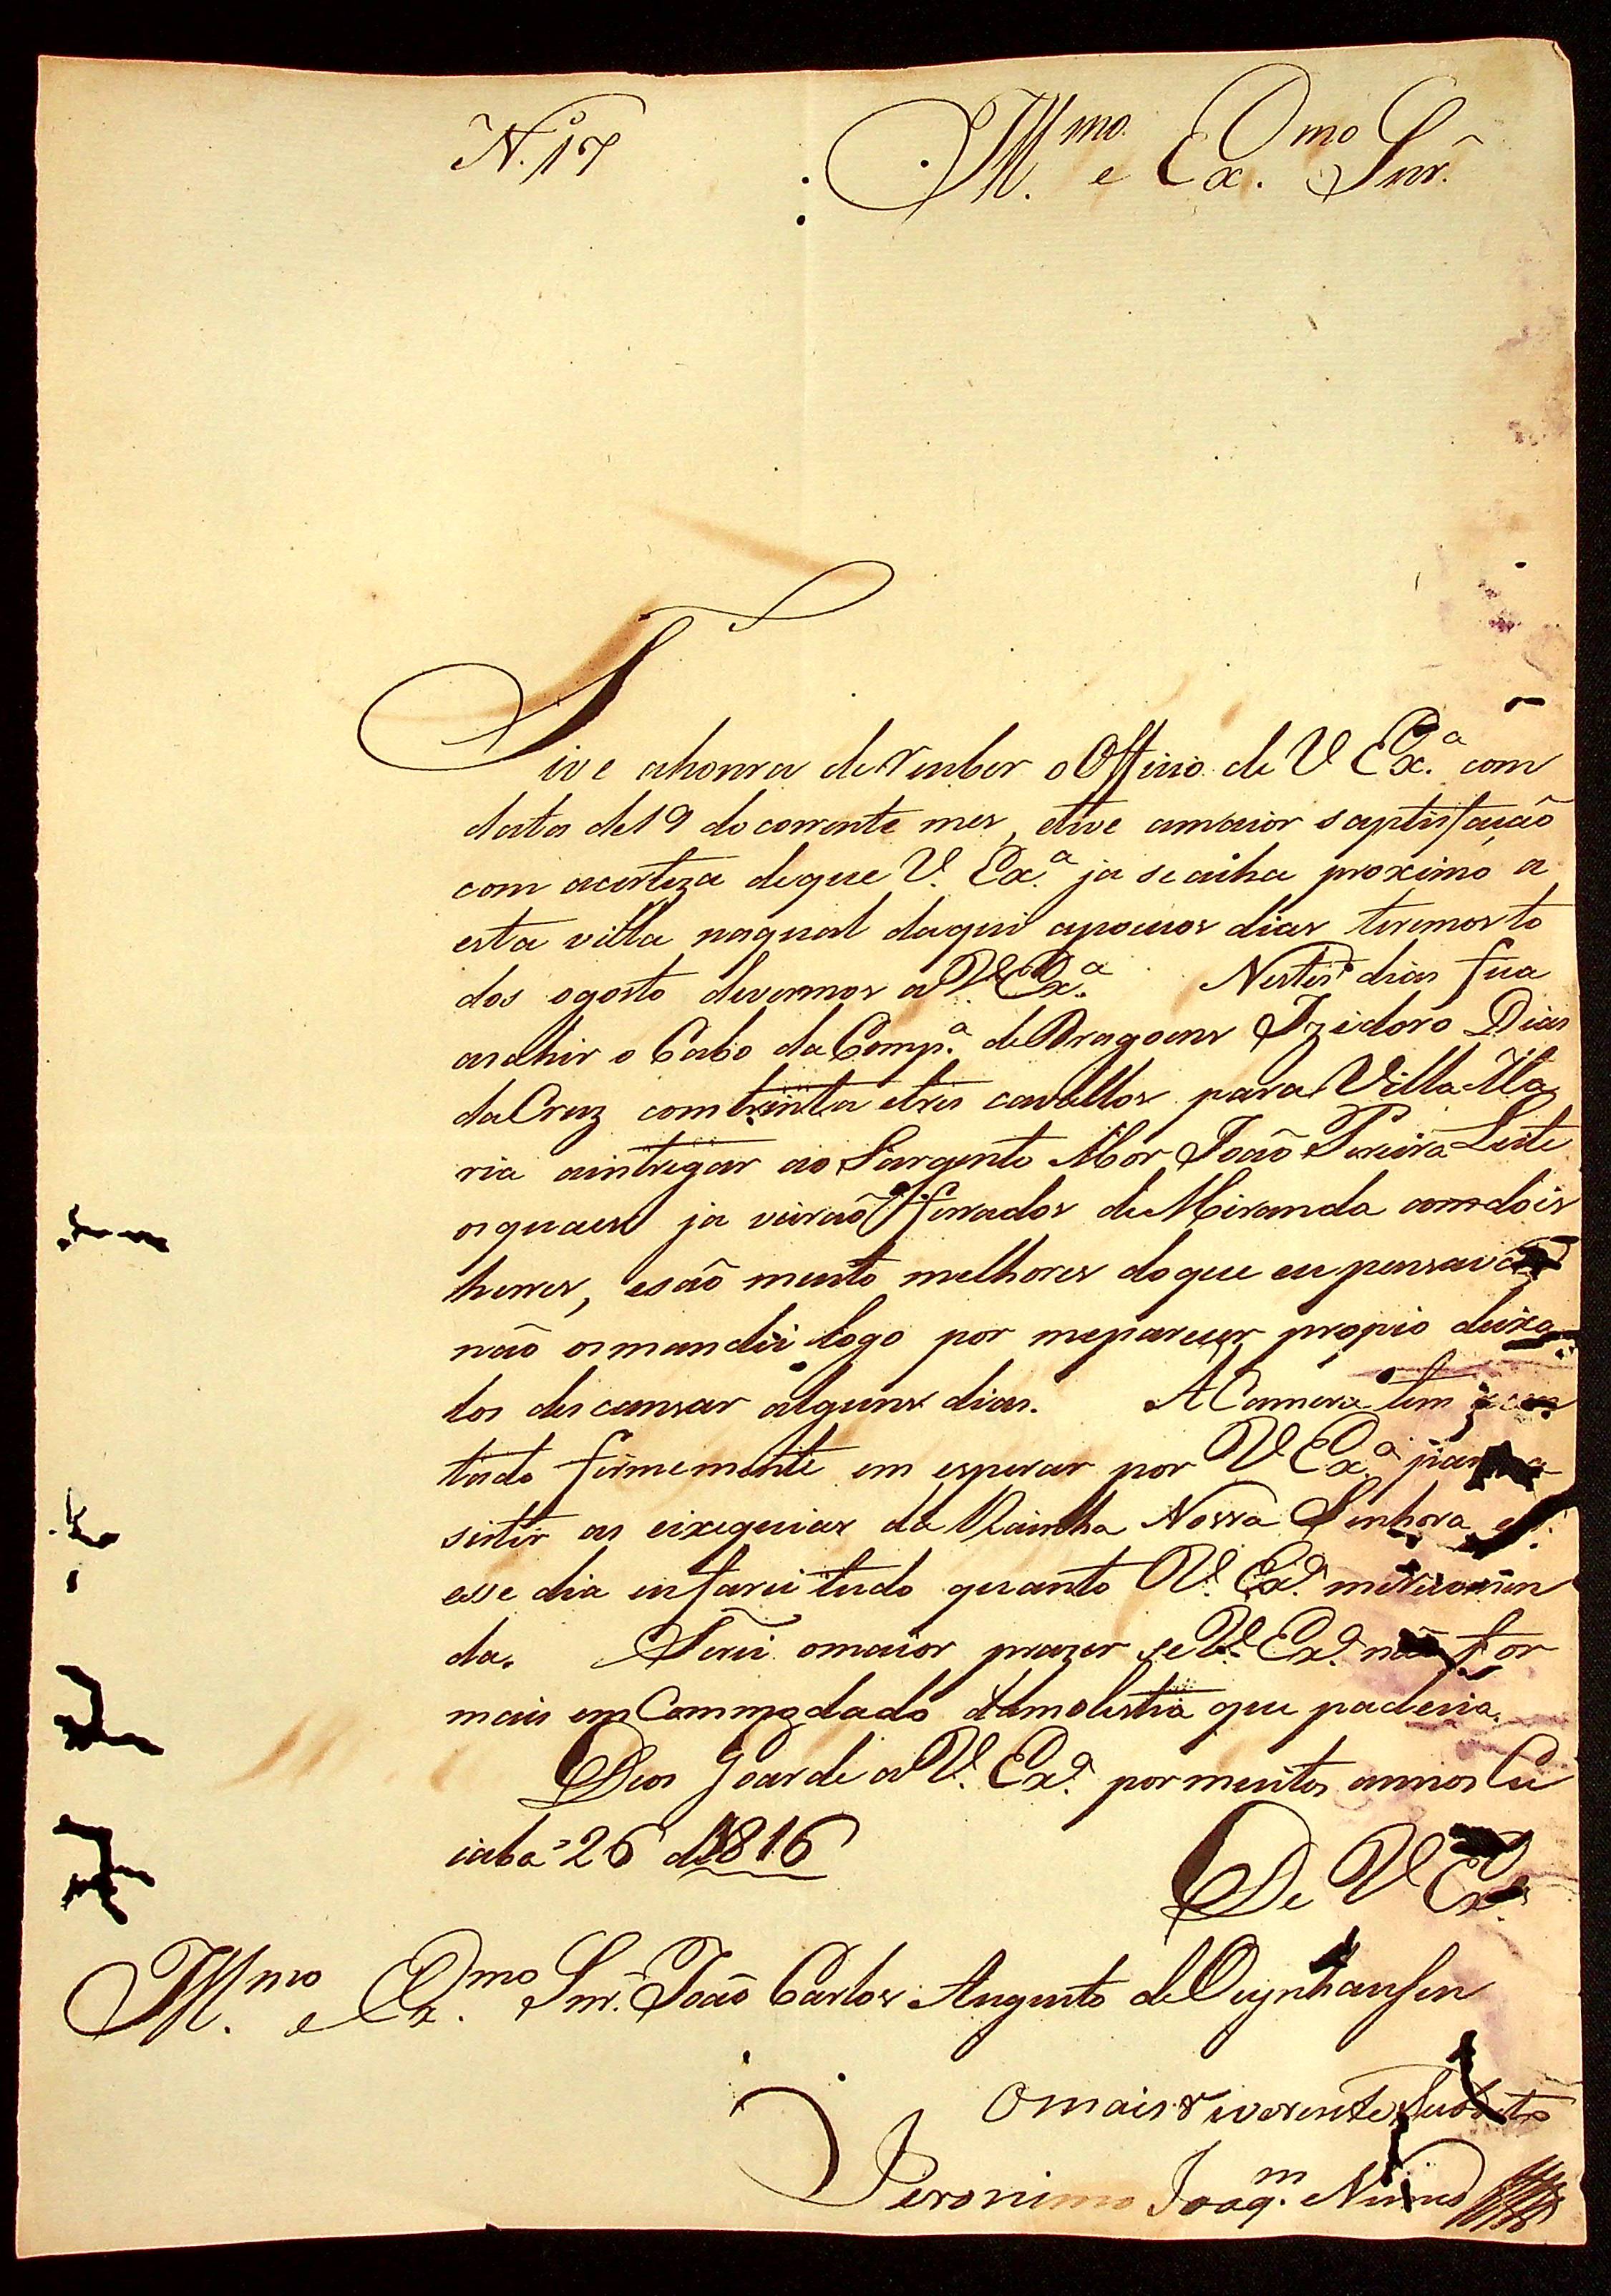 N.º 17
Ill.mo e Ex.mo Snr.
Tive ahonra de receber o Officio de V Ex.ª com
data de 19 do corrente mes, etive amaior saptisfação
com acerteza deque V. Ex.ª ja se acha proximo a
esta villa naqual daqui apoucos dias teremos to
dos ogosto devermos a V. Ex.ª Nestes dias fica
asahir o Cabo da Comp.ª de Dragoens Izidoro Dias
da Cruz com trinta etres cavallos para Villa Ma
ria aintregar ao Sargento Mor João Pereira Leite
os quaes ja vierão ferrados de Miranda com dois
ferros, esão muito melhores doque eu pensava
não os mandei logo por meparecer propio deixa
los descansar alguns dias. A Camera tem
tado firmemente em esperar por V Ex.ª para a
sistir as eixequias da Rainha Nossa Senhora
esse dia eu farei tudo quanto V. Ex.ª merecomen
da. Terei omaior prazer se V. Ex.ª não for
mais emCommodado damolestia que padecia.
Deos Goarde a V. Ex.ª por muitos annos Cu
iaba 26 de 1816
De V Ex.ª
Ill.mo e Ex.mo Snr. João Carlos Augusto de Oeynhausen
Omais reverente Subdito
Jeronimo Joaq.m Nunes